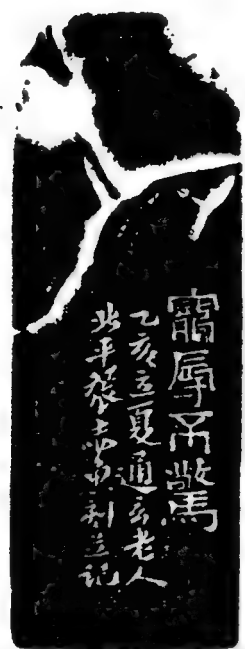 寵辱不驚
乙亥立夏通玄老人
北平張志魚刻并记